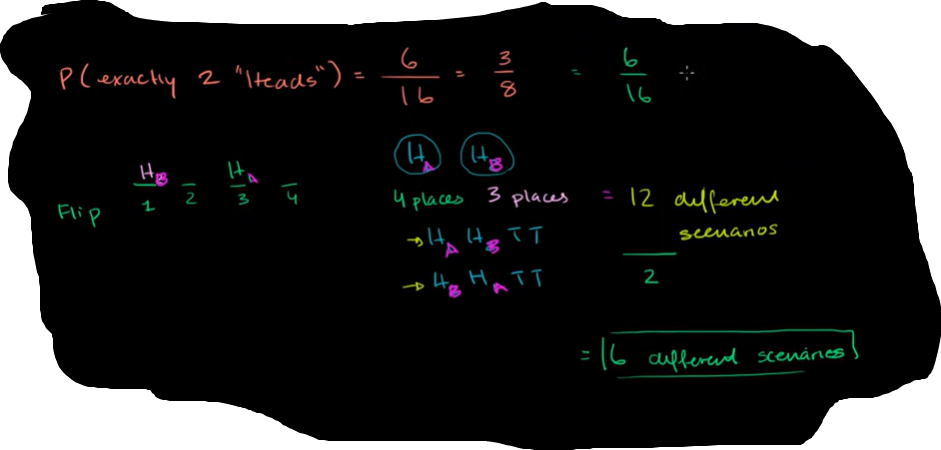 P(exactly 2 "Heads") = 6/16 = 3/8 = 6/16
H_A H_B
Flip H_B/1 _/2 H_A/3 _/4
4 places 3 places = 12 different scenarios / 2
→ H_A H_B T T
→ H_B H_A T T
= 6 different scenarios